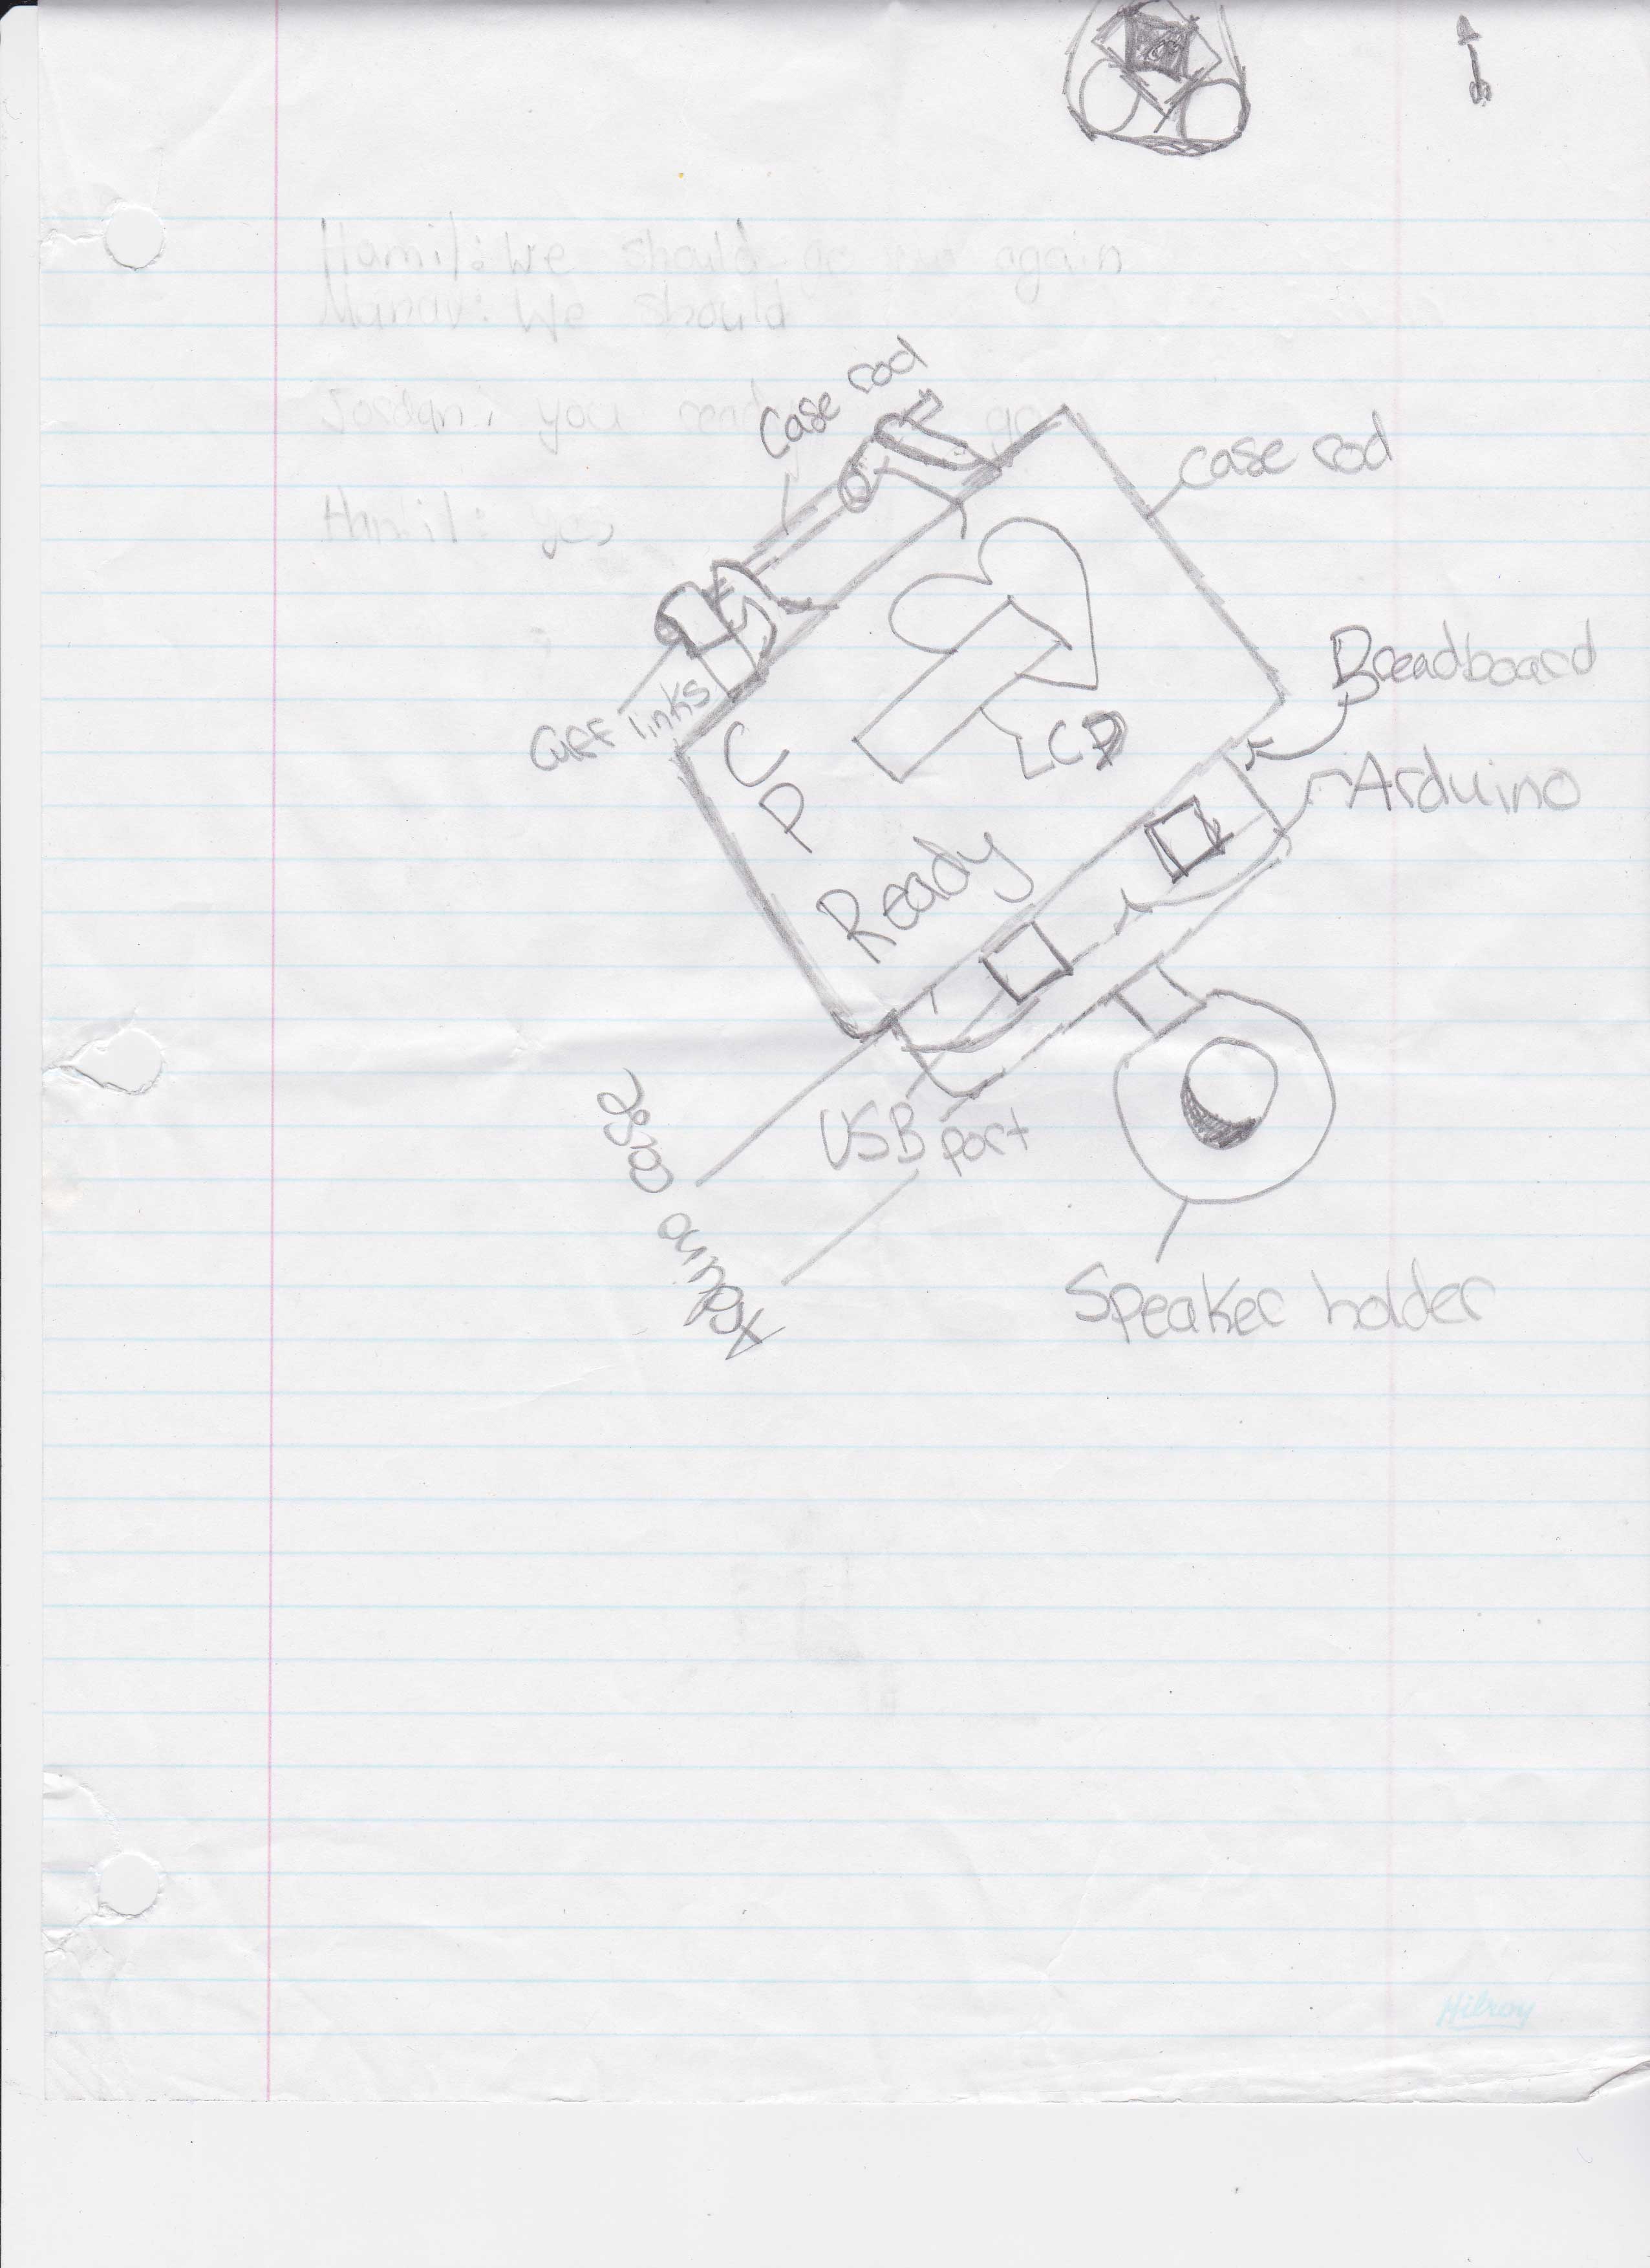 Hamil: We should go again
Manav: We should
Jordan: you ready go
Hamil: yes
Case rod
case rod
Cuff links
Breadboard
LCD
Arduino
C
P
Ready
USB port
Arduino case
Speaker holder
Hilroy